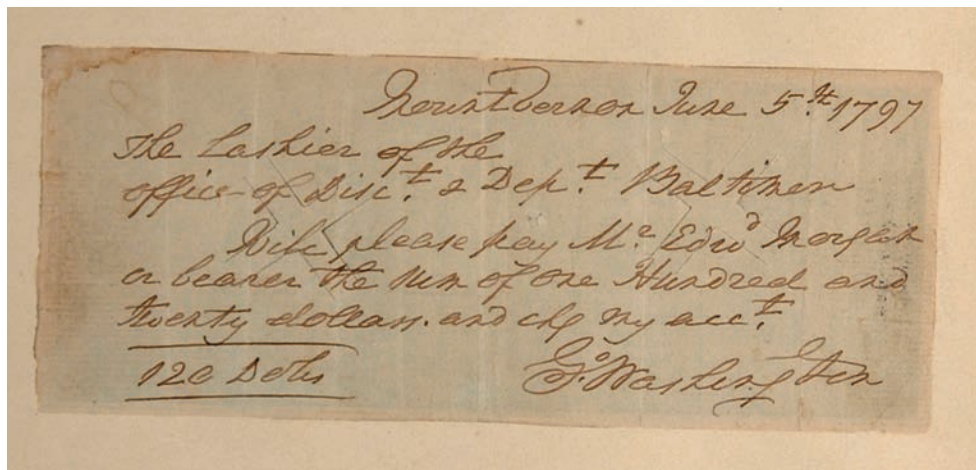 Mount Vernon June 5th. 1797
The Cashier of the
office of Disct. & Dept. Baltimore
Will please pay Mr. Edwd Morgan
or bearer the sum of one Hundred and
twenty dollars. and chg my acct.
120 Dolrs
Go. Washington